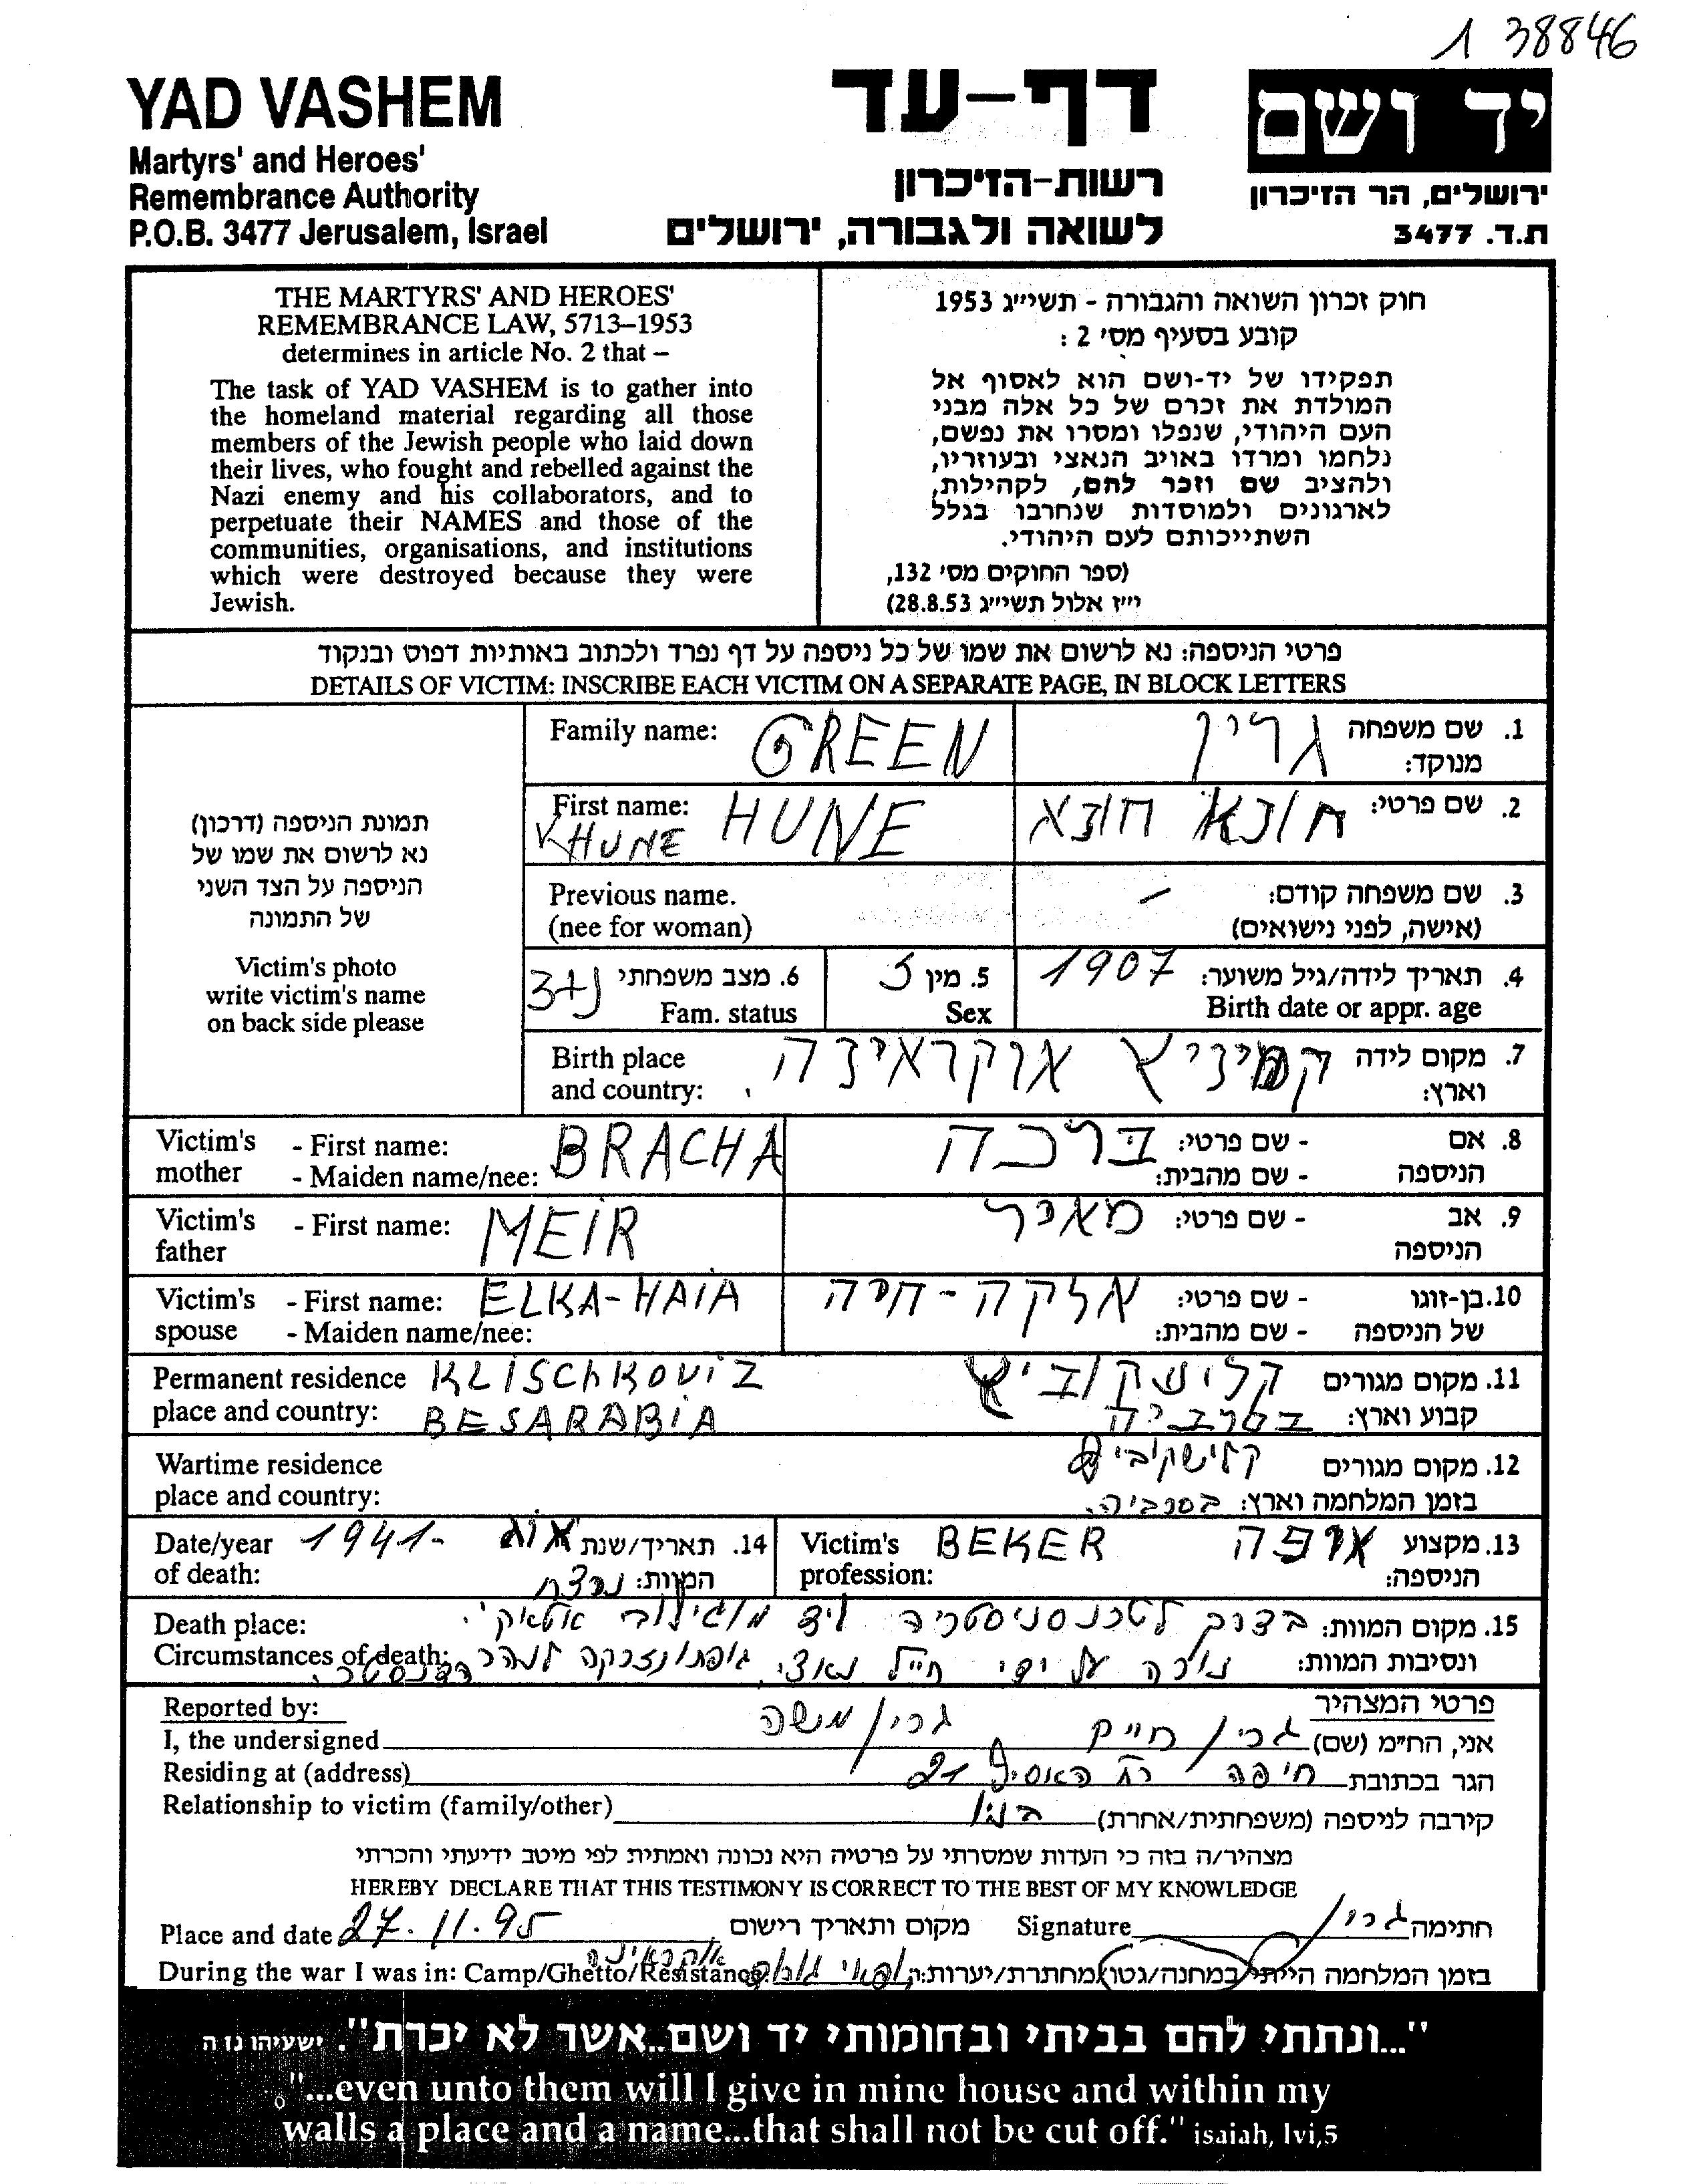 1 38846
YAD VASHEM
Martyrs' and Heroes'
Remembrance Authority
P.O.B. 3477 Jerusalem, Israel
דף-עד
רשות-הזיכרון
לשואה ולגבורה, ירושלים
יד ושם
ירושלים, הר הזיכרון
ת.ד. 3477
THE MARTYRS' AND HEROES'
REMEMBRANCE LAW, 5713–1953
determines in article No. 2 that –
The task of YAD VASHEM is to gather into
the homeland material regarding all those
members of the Jewish people who laid down
their lives, who fought and rebelled against the
Nazi enemy and his collaborators, and to
perpetuate their NAMES and those of the
communities, organisations, and institutions
which were destroyed because they were
Jewish.
חוק זכרון השואה והגבורה - תשי״ג 1953
קובע בסעיף מס' 2 :
תפקידו של יד-ושם הוא לאסוף אל
המולדת את זכרם של כל אלה מבני
העם היהודי, שנפלו ומסרו את נפשם,
נלחמו ומרדו באויב הנאצי ובעוזריו,
ולהציב שם וזכר להם, לקהילות,
לארגונים ולמוסדות שנחרבו בגלל
השתייכותם לעם היהודי.
(ספר החוקים מס' 132,
י״ז אלול תשי״ג 28.8.53)
פרטי הניספה: נא לרשום את שמו של כל ניספה על דף נפרד ולכתוב באותיות דפוס ובנקוד
DETAILS OF VICTIM: INSCRIBE EACH VICTIM ON A SEPARATE PAGE, IN BLOCK LETTERS
תמונת הניספה (דרכון)
נא לרשום את שמו של
הניספה על הצד השני
של התמונה
Victim's photo
write victim's name
on back side please
Family name: GREEN
1. שם משפחה מנוקד: גרין
First name: HUNE
KHUNE
2. שם פרטי: חונא חונא
Previous name.
(nee for woman)
3. שם משפחה קודם: -
(אישה, לפני נישואים)
4. תאריך לידה/גיל משוער: 1907
Birth date or appr. age
5. מין ג
Sex
6. מצב משפחתי נ+3
Fam. status
Birth place
and country:
7. מקום לידה וארץ: קמיניץ אוקראינה
Victim's mother - First name: BRACHA
- Maiden name/nee:
8. אם הניספה - שם פרטי: ברכה
- שם מהבית:
Victim's father - First name: MEIR
9. אב הניספה - שם פרטי: מאיר
Victim's spouse - First name: ELKA-HAIA
- Maiden name/nee:
10. בן-זוגו של הניספה - שם פרטי: אלקה-חיה
- שם מהבית:
Permanent residence place and country: KLISCHKOVIZ
BESARABIA
11. מקום מגורים קבוע וארץ: קלישקוביץ
בסרביה
Wartime residence
place and country:
12. מקום מגורים בזמן המלחמה וארץ: קלישקוביץ
בסרביה.
Date/year of death: 1941-
14. תאריך/שנת המוות: אוג
נרצח
Victim's profession: BEKER
13. מקצוע הניספה: אופה
Death place:
Circumstances of death:
15. מקום המוות: בדרך לטרנסניסטריה ליד מוגילוב אטאקי.
ונסיבות המוות: נורה על ידי חייל נאצי, גופתו נזרקה לנהר הדניסטר.
Reported by:
פרטי המצהיר
I, the undersigned
אני, הח״מ (שם) גרין חייק גרין משה
Residing at (address)
הגר בכתובת חיפה רח האסיף 21
Relationship to victim (family/other)
קירבה לניספה (משפחתית/אחרת) בנו
מצהיר/ה בזה כי העדות שמסרתי על פרטיה היא נכונה ואמתית לפי מיטב ידיעתי והכרתי
HEREBY DECLARE THAT THIS TESTIMONY IS CORRECT TO THE BEST OF MY KNOWLEDGE
Place and date 27.11.95 מקום ותאריך רישום
Signature חתימה גרין
During the war I was in: Camp/Ghetto/Resistance:
בזמן המלחמה הייתי במחנה/גטו/מחתרת/יערות: אוקראינה
"...ונתתי להם בביתי ובחומותי יד ושם..אשר לא יכרת". ישעיהו נו ה
"...even unto them will I give in mine house and within my
walls a place and a name...that shall not be cut off." isaiah, lvi,5